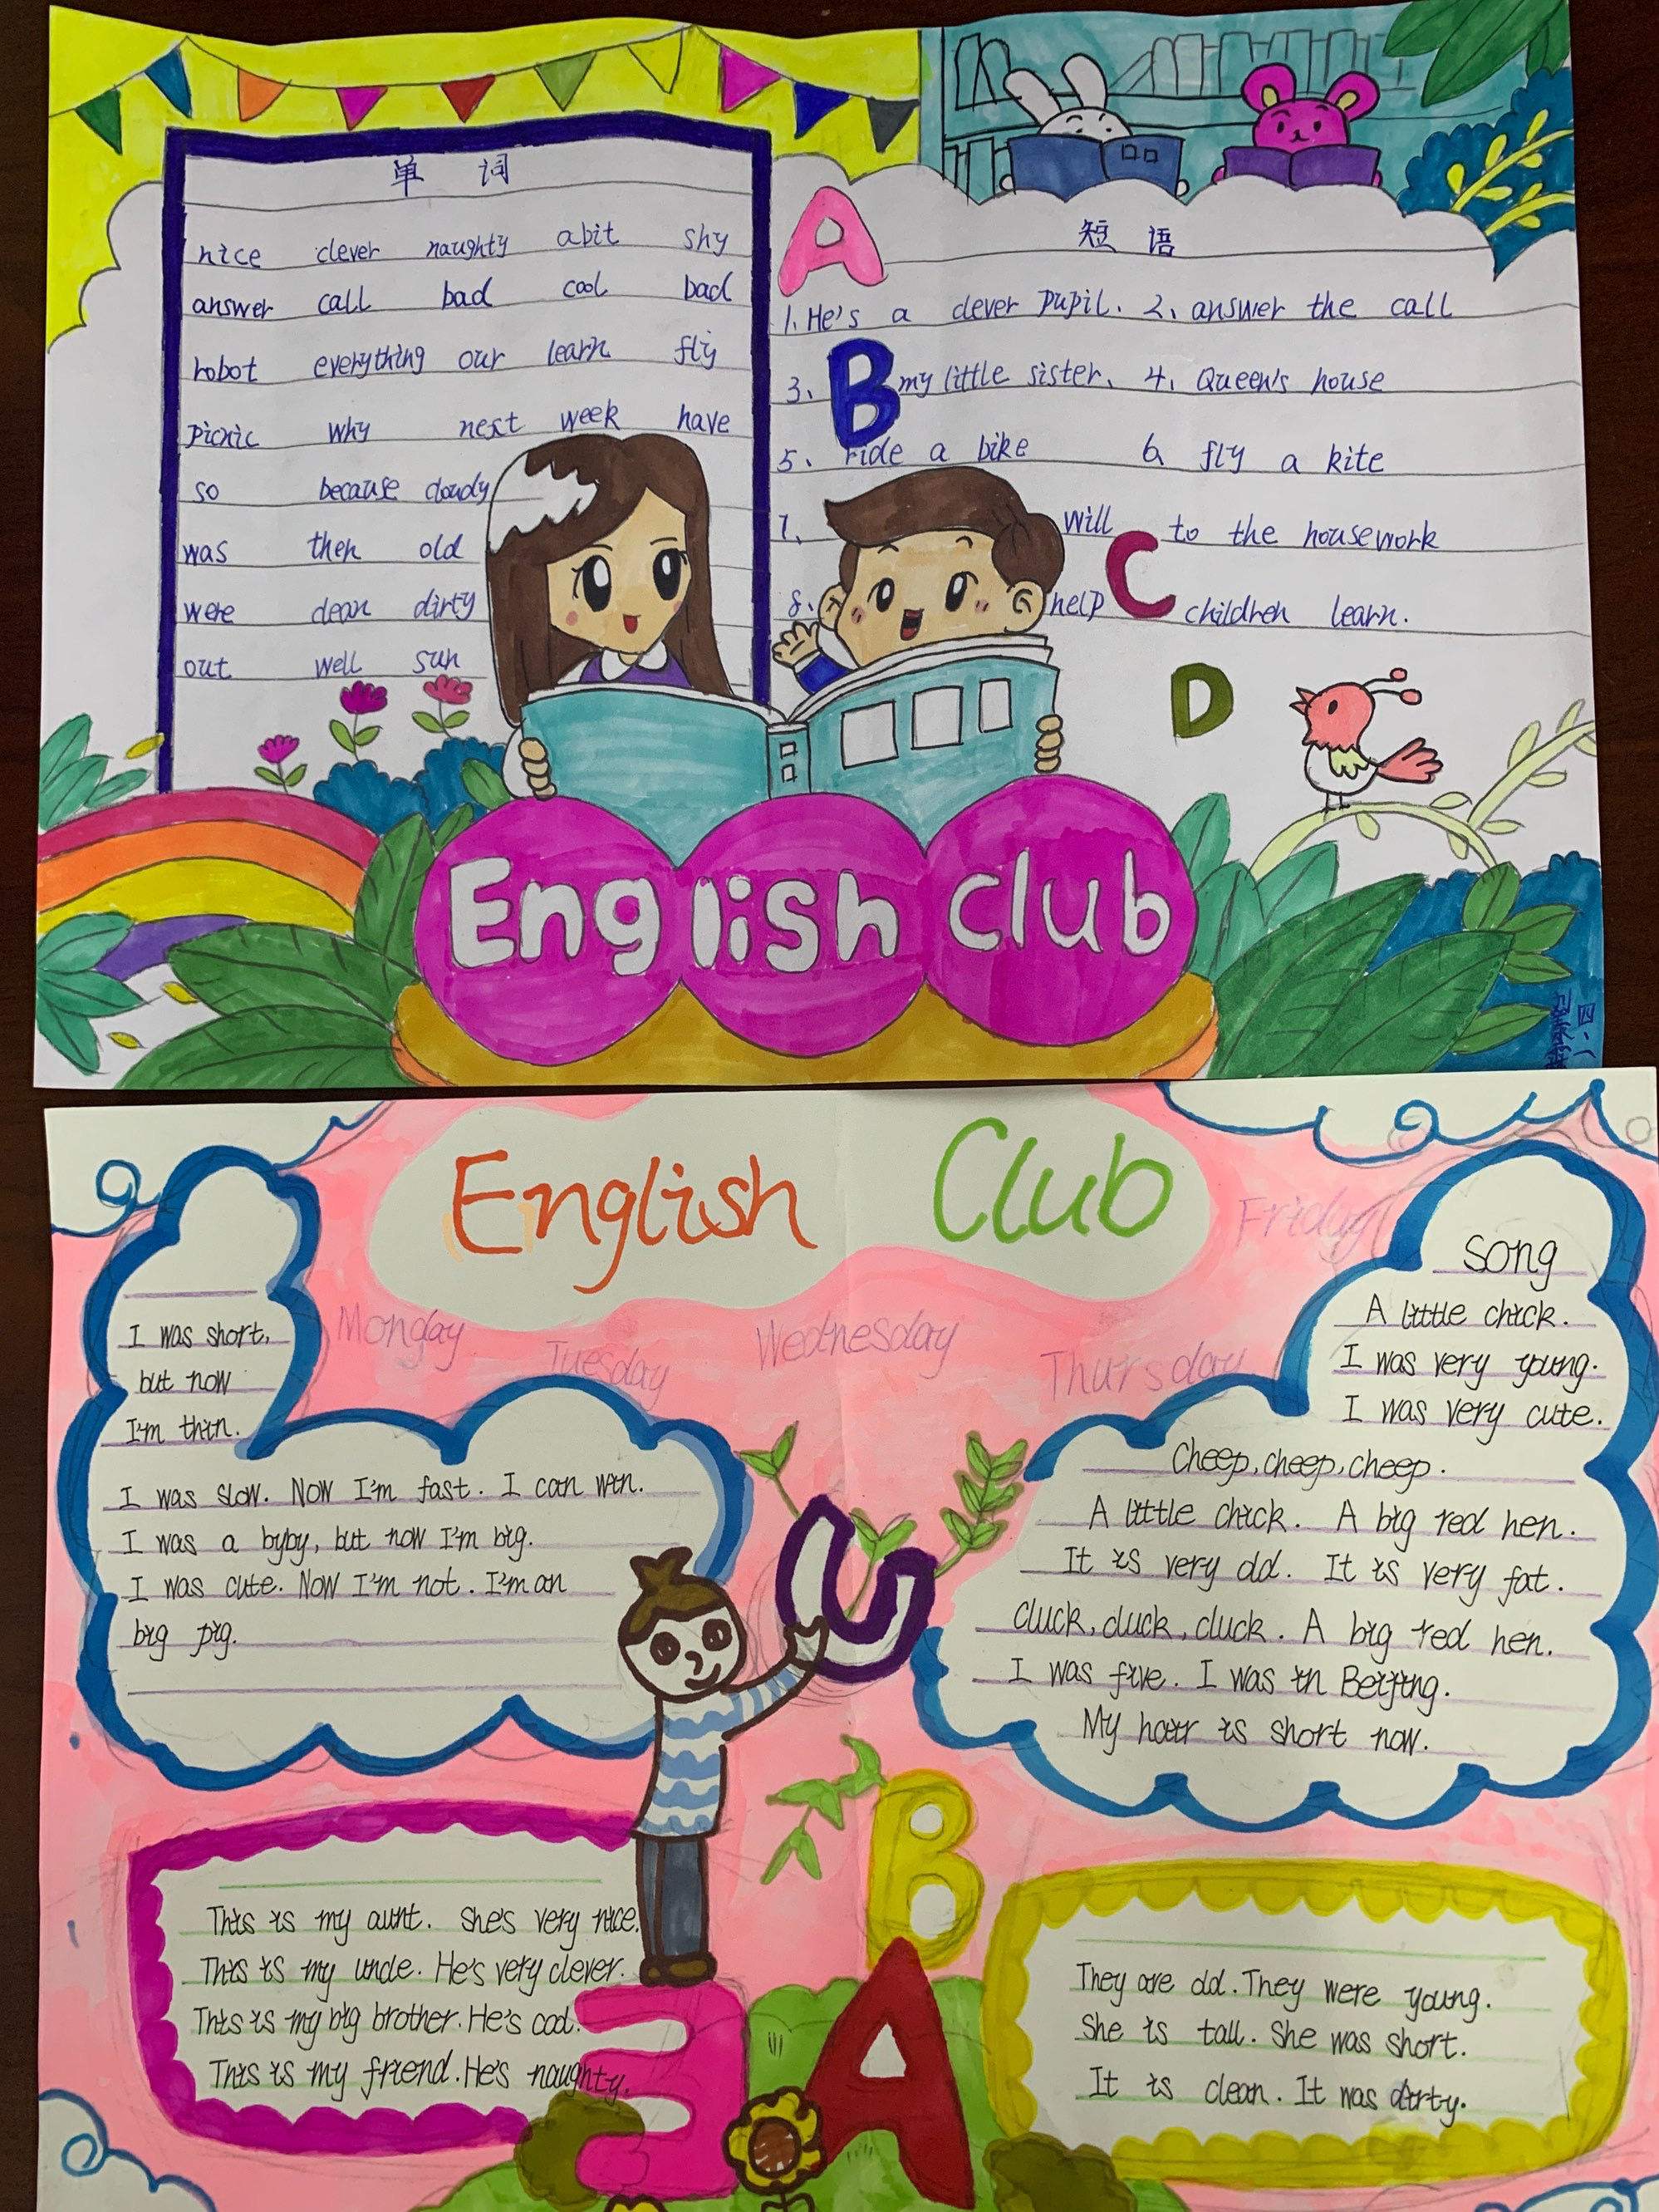 单 词
nice clever naughty abit shy
answer call bad cool bad
robot everything our learn fly
picnic why next week have
so because cloudy
was then old
were clean dirty
out well sun
A
短 语
1. He's a clever pupil. 2、answer the call
3、 B my little sister、 4、Queen's house
5、 ride a bike 6 fly a kite
7、 will to the housework
8、 help C children learn.
D
English club
English Club
Friday
Monday Tuesday Wednesday Thursday
I was short,
but now
I'm thin.
I was slow. Now I'm fast. I can win.
I was a byby, but now I'm big.
I was cute. Now I'm not. I'm an
big pig.
song
A little chick.
I was very young.
I was very cute.
Cheep, cheep, cheep.
A little chick. A big red hen.
It is very old. It is very fat.
Cluck, cluck, cluck. A big red hen.
I was five. I was in Beijing.
My hair is short now.
This is my aunt. She's very nice.
This is my uncle. He's very clever.
This is my big brother. He's cool.
This is my friend. He's naughty.
B
A
They are old. They were young.
She is tall. She was short.
It is clean. It was dirty.